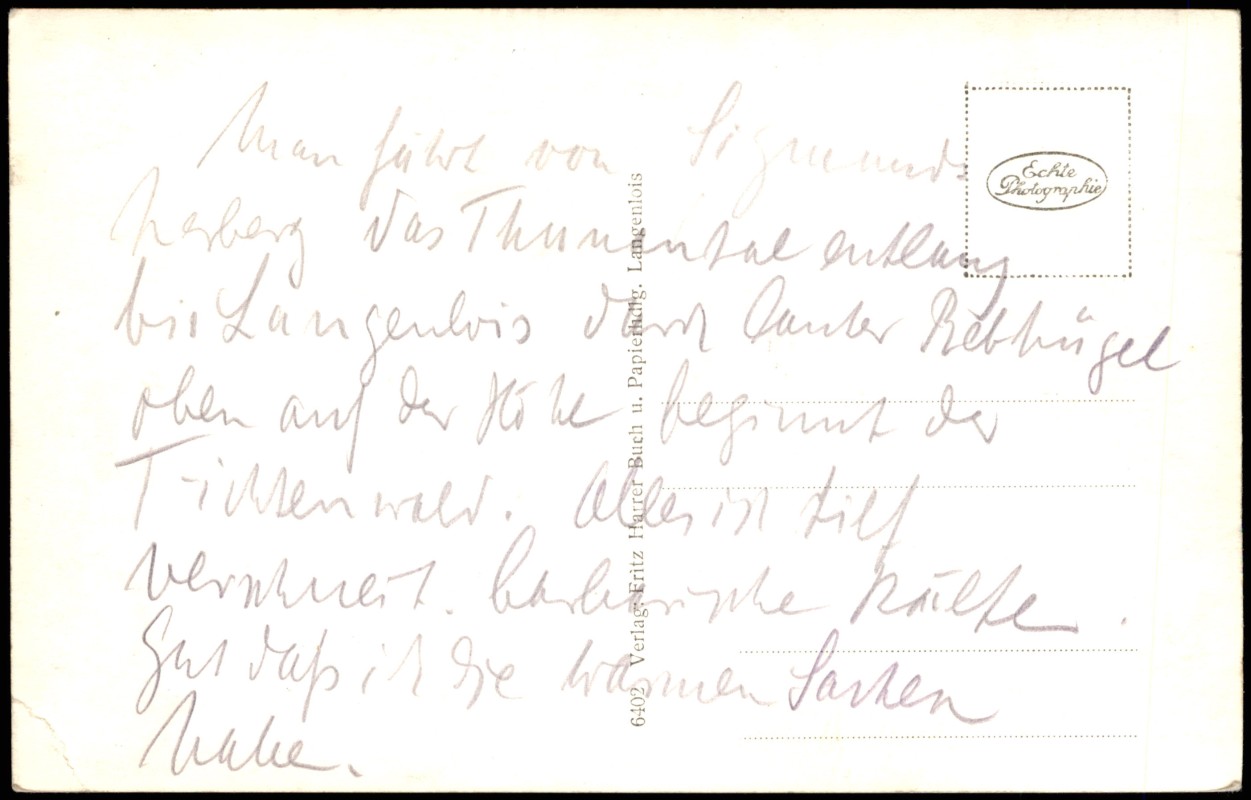 Man fährt von Sigmunds
herberg das Thumental entlang
bis Langenlois durch lauter Rebhügel
oben auf der Höhe beginnt der
Fichtenwald. Alles ist tief
verschneit. barbarische Kälte.
Gut daß ich die warmen Sachen
habe.
Echte
Photographie
6402 Verlag: Fritz Harrer Buch u. Papierhdlg. Langenlois